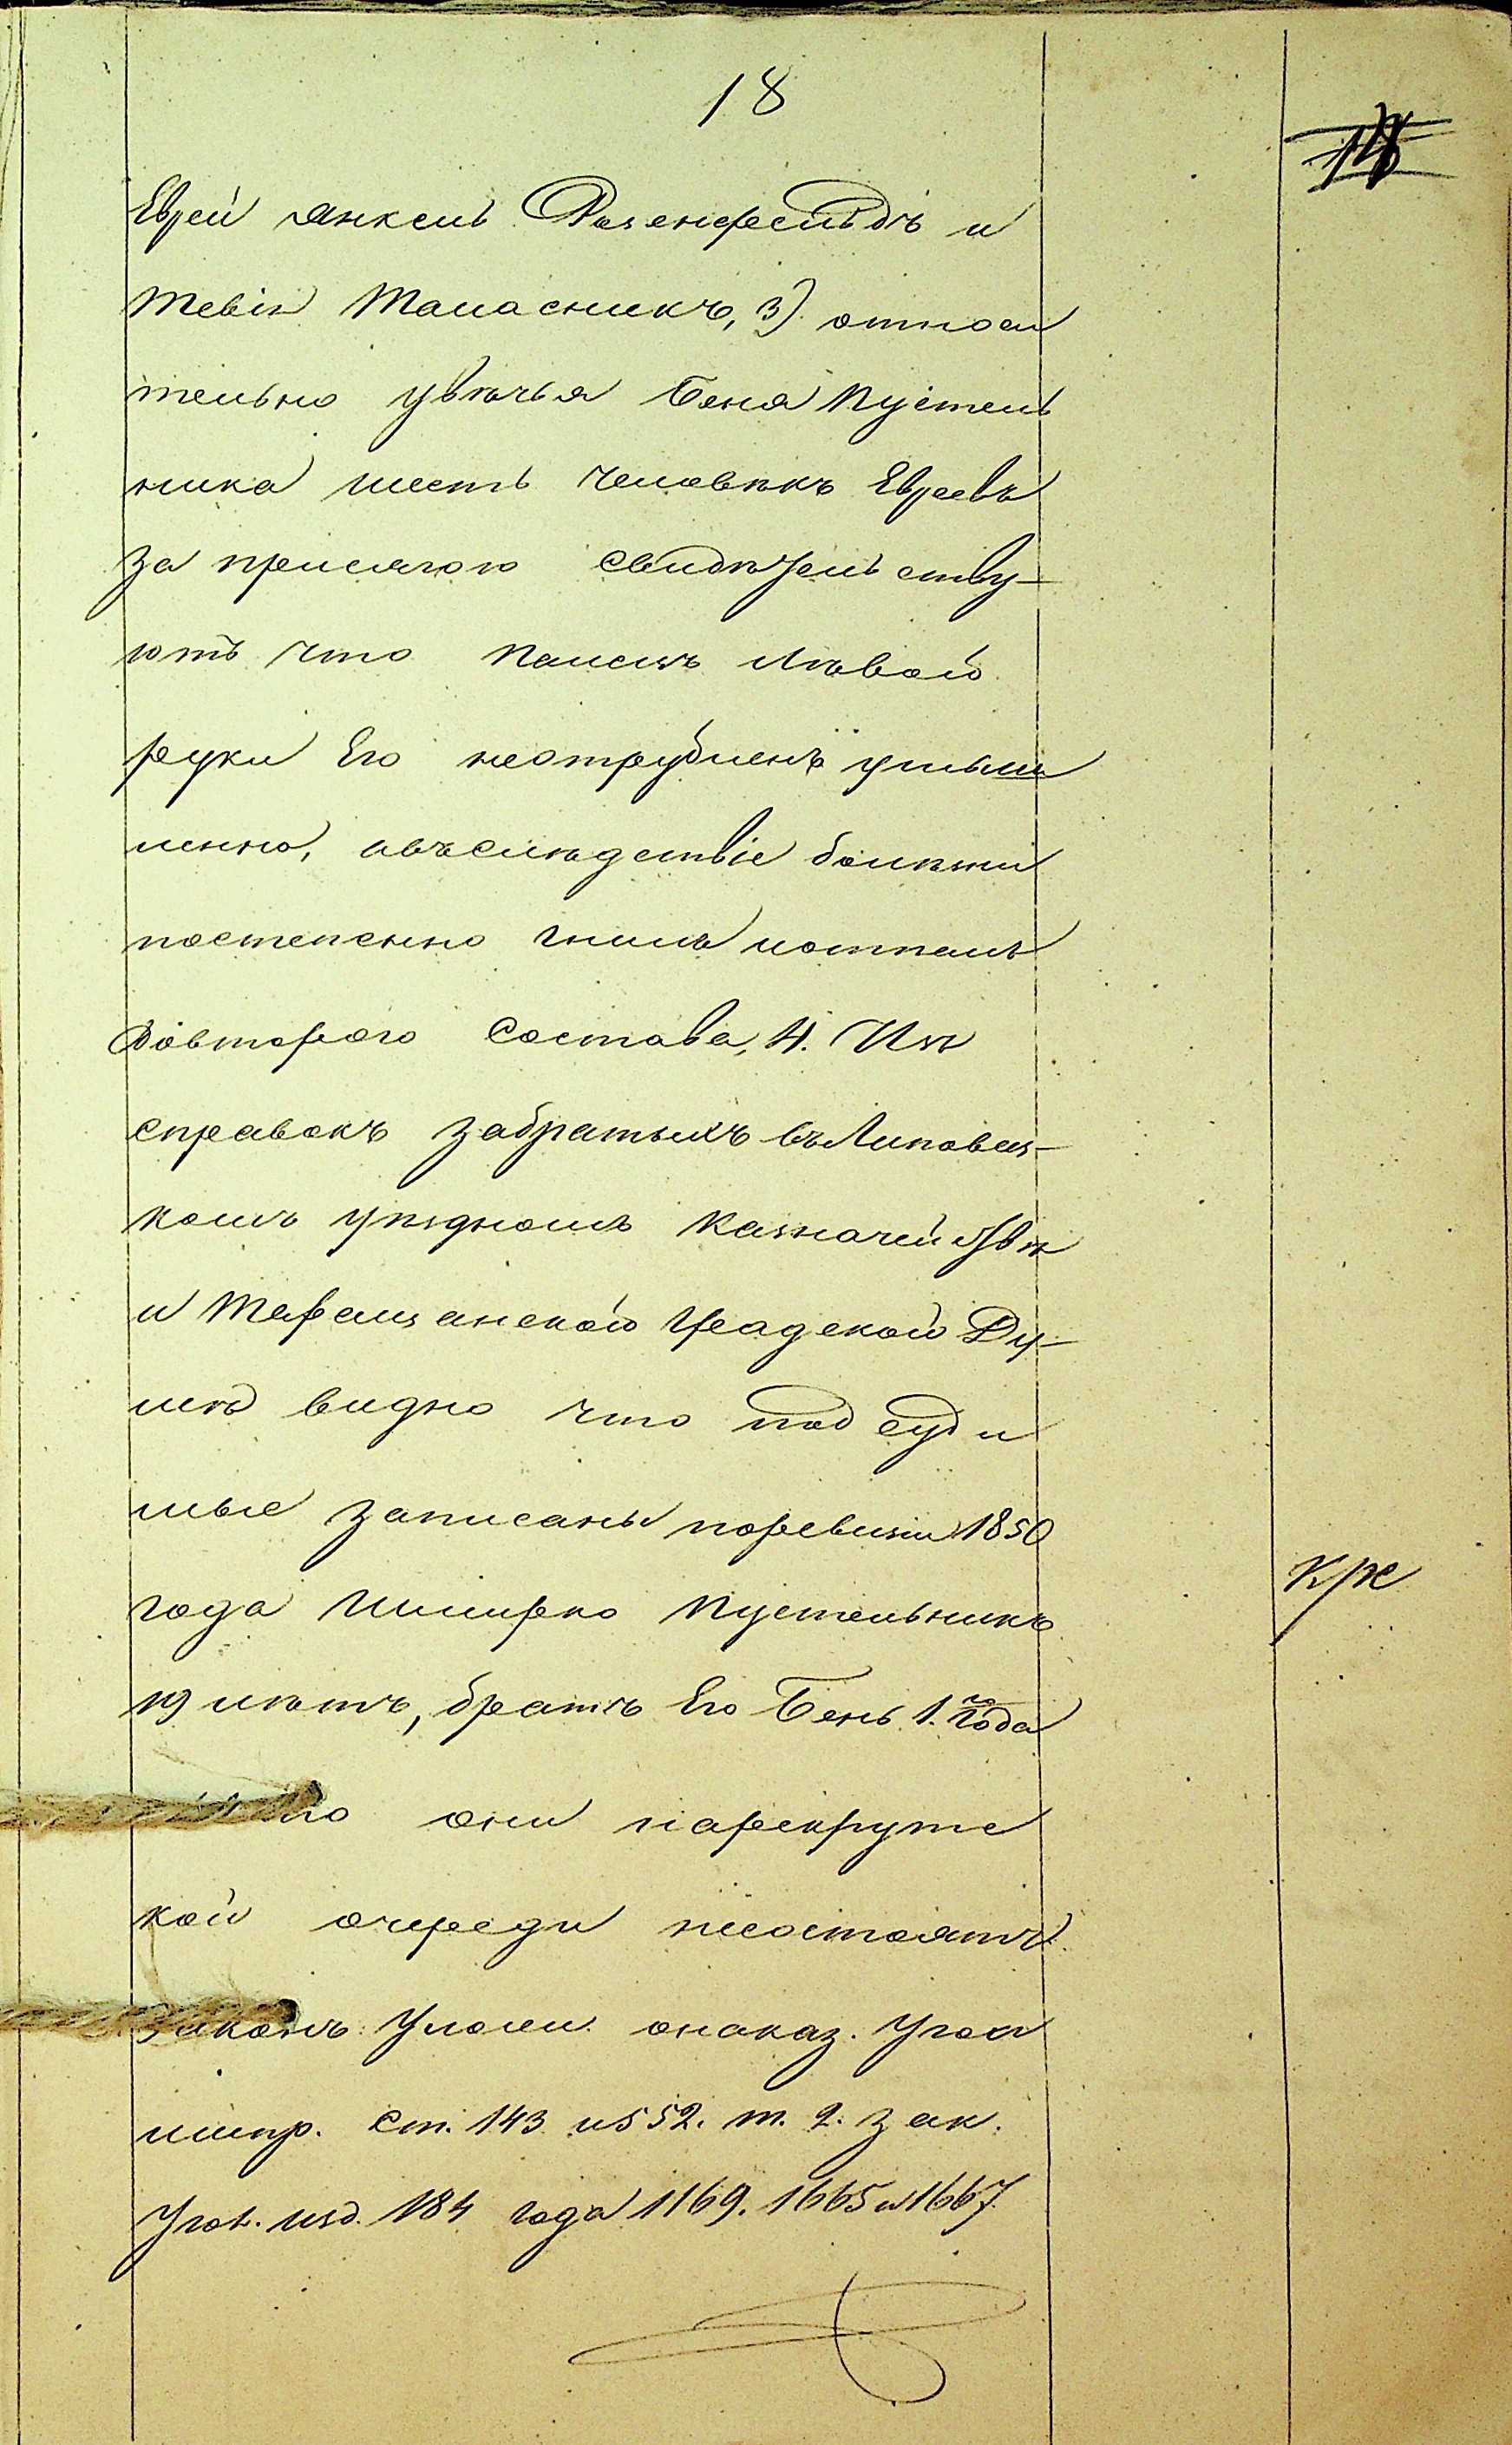 18
18
Еврей Янкель Розенфельдъ и
Тевія Таласникъ, 3) относи
тельно увѣчья Беня Пустель
ника шесть человѣкъ Евреевъ
за присягою свидѣтельству-
ютъ что палецъ лѣвой
руки Его неотрубленъ умыш
ленно, авъслѣдствіе болѣзни
постепенно гнилъ иотпалъ
довтораго состава, 4. Изъ
справокъ забратыхъ въ Липовец-
комъ уѣздномъ Казначействѣ
и Таращанской Градской Ду-
мѣ видно что под суди
мые записаны поревизіи 1850
года Шмерко Пустельникъ
19 лѣтъ, братъ Его Бень 1. го года
но они нарекрутс
кой очереди несостоятъ.
Законъ: Улож. онаказ. Угол
ииспр. ст. 143 и 552. т. 2. зак.
Угол. изд. 184 года 1169. 1665 и 1667.